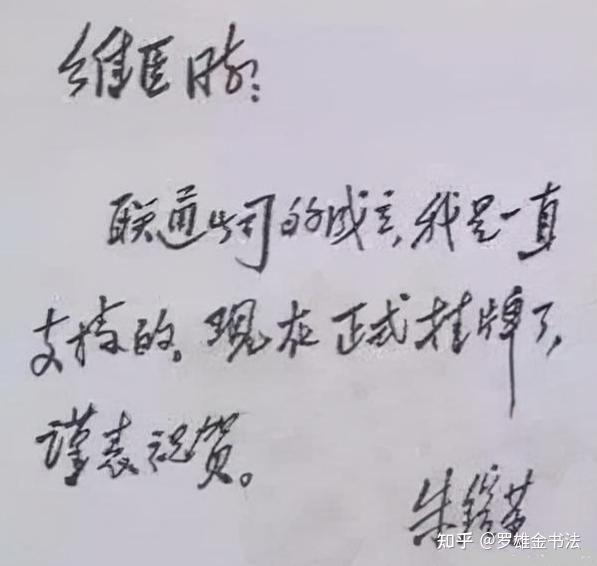 维臣同志:
联通公司的成立,我是一直
支持的。现在正式挂牌了,
谨表祝贺。
朱镕基
知乎 @罗雄金书法